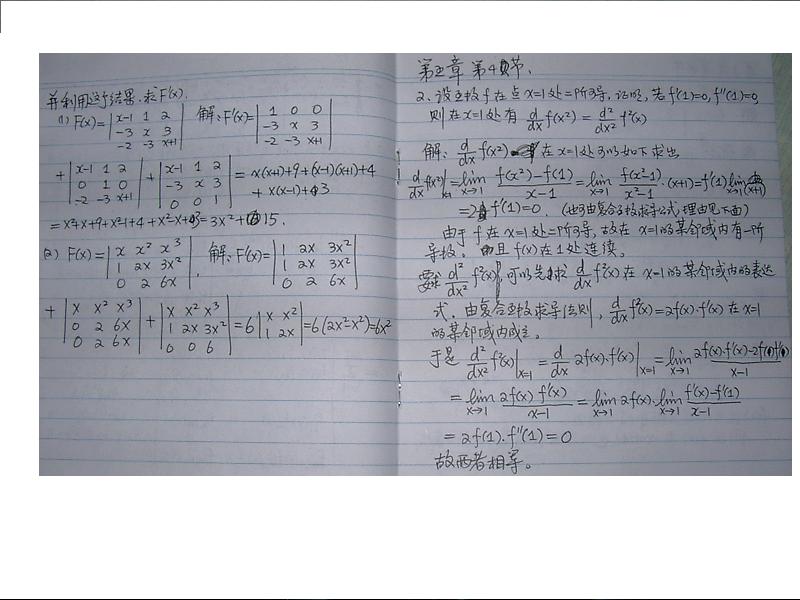 并利用这个结果,求F'(x).
(1) F(x)=|x-1 1 2; -3 x 3; -2 -3 x+1| 解: F'(x)=|1 0 0; -3 x 3; -2 -3 x+1|
+|x-1 1 2; 0 1 0; -2 -3 x+1|+|x-1 1 2; -3 x 3; 0 0 1|=x(x+1)+9+(x-1)(x+1)+4
+x(x-1)+3
=x²+x+9+x²-1+4+x²-x+3=3x²+15.
(2) F(x)=|x x² x³; 1 2x 3x²; 0 2 6x|. 解: F'(x)=|1 2x 3x²; 1 2x 3x²; 0 2 6x|
+|x x² x³; 0 2 6x; 0 2 6x|+|x x² x³; 1 2x 3x²; 0 0 6|=6|x x²; 1 2x|=6(2x²-x²)=6x²
第五章 第4节.
2、设函数f在点x=1处二阶可导,证明,若f'(1)=0,f''(1)=0,
则在x=1处有 d/dx f(x²)=d²/dx² f²(x)
解: d/dx f(x²) 在x=1处可以如下求出
d/dx f(x²)|ₓ₌₁=lim x→1 (f(x²)-f(1))/(x-1)=lim x→1 (f(x²)-1)/(x²-1)·(x+1)=f'(1)lim x→1 (x+1)
=2f'(1)=0. (也可由复合函数求导公式,理由见下面)
由于f在x=1处二阶可导,故在x=1的某邻域内有一阶
导数. 且f(x)在1处连续.
要求 d²/dx² f²(x)|,可以先求 d/dx f²(x)在x=1的某邻域内的表达
式.由复合函数求导法则, d/dx f²(x)=2f(x)·f'(x)在x=1
的某邻域内成立.
于是 d²/dx² f²(x)|ₓ₌₁=d/dx 2f(x)·f'(x)|ₓ₌₁=lim x→1 (2f(x)·f'(x)-2f(1)f'(1))/(x-1)
=lim x→1 2f(x)f'(x)/(x-1)=lim x→1 2f(x)·lim x→1 (f'(x)-f'(1))/(x-1)
=2f(1)·f''(1)=0
故两者相等。